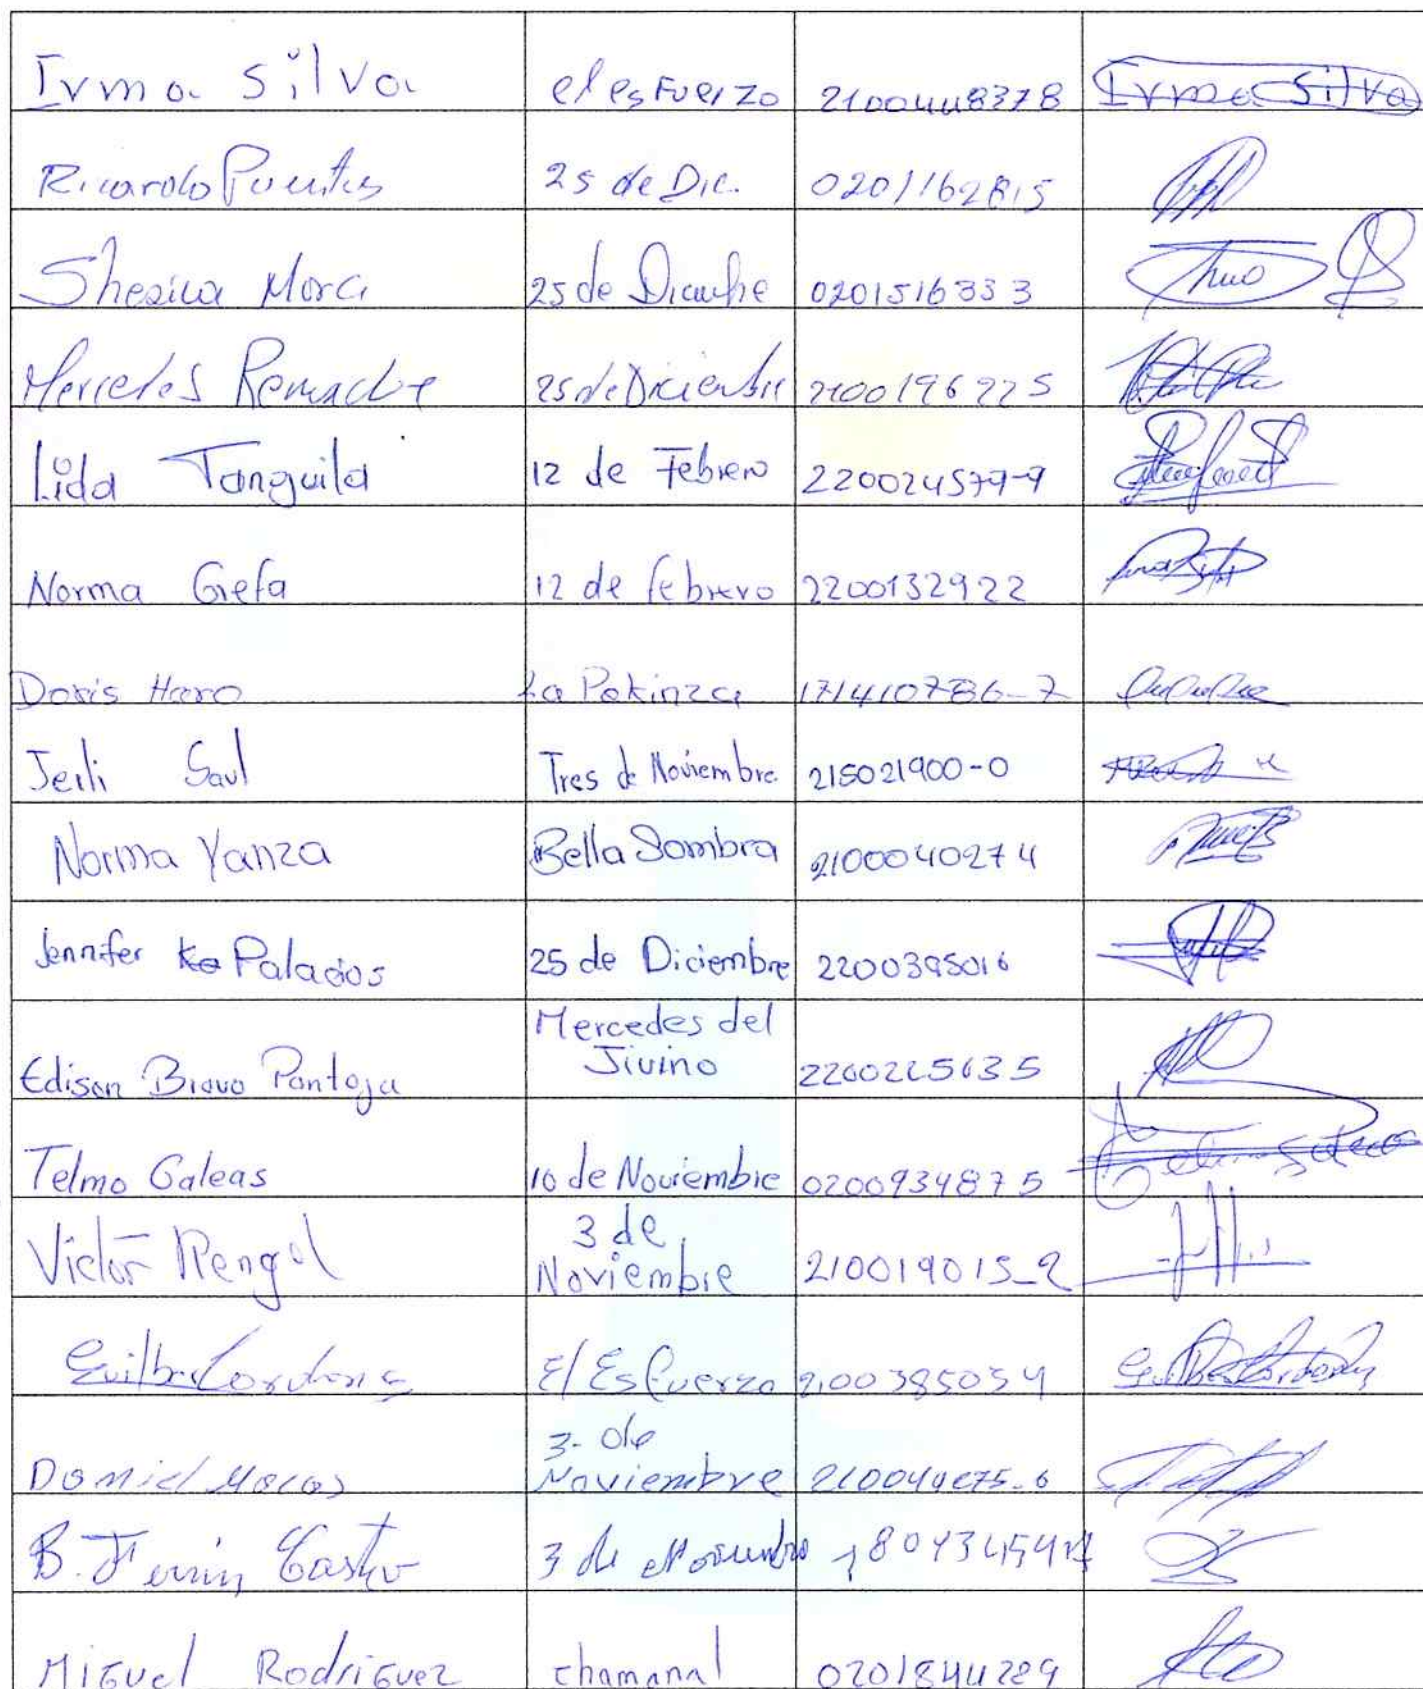 Irma Silva el esfuerzo 2100448378 Irma Silva
Ricardo Puentes 25 de Dic. 0201162815
Shesica Mora 25 de Diciembre 0201516333
Mercedes Remache 25 de Diciembre 2100196225
Lida Tanguila 12 de Febrero 220024579-9
Norma Grefa 12 de febrero 2200132922
Doris Haro La Pakinza 171410786-7
Jeili Saul Tres de Noviembre 215021900-0
Norma Yanza Bella Sombra 2100040274
Jennifer Palacios 25 de Diciembre 2200395016
Edison Bravo Pantoja Mercedes del
Jivino 2200225635
Telmo Galeas 10 de Noviembre 0200934875
Victor Rengel 3 de
Noviembre 210019015-2
Cordones El Esfuerzo 2100385034
Daniel Macas 3 de
Noviembre
B. Castro 3 de Noviembre
Miguel Rodriguez chamanal 0201844289